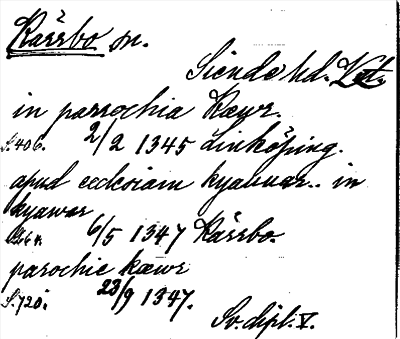 Kärrbo sn.
Siende hd. Vstm.
in parrochia Kæwr.
S. 406. 2/2 1345 Linköping.
apud ecclesiam kyaurar.. in
kyawar
6/5 1347 Kärrbo.
parochie kæwr
S. 720. 23/9 1347.
Sv. dipl. V.